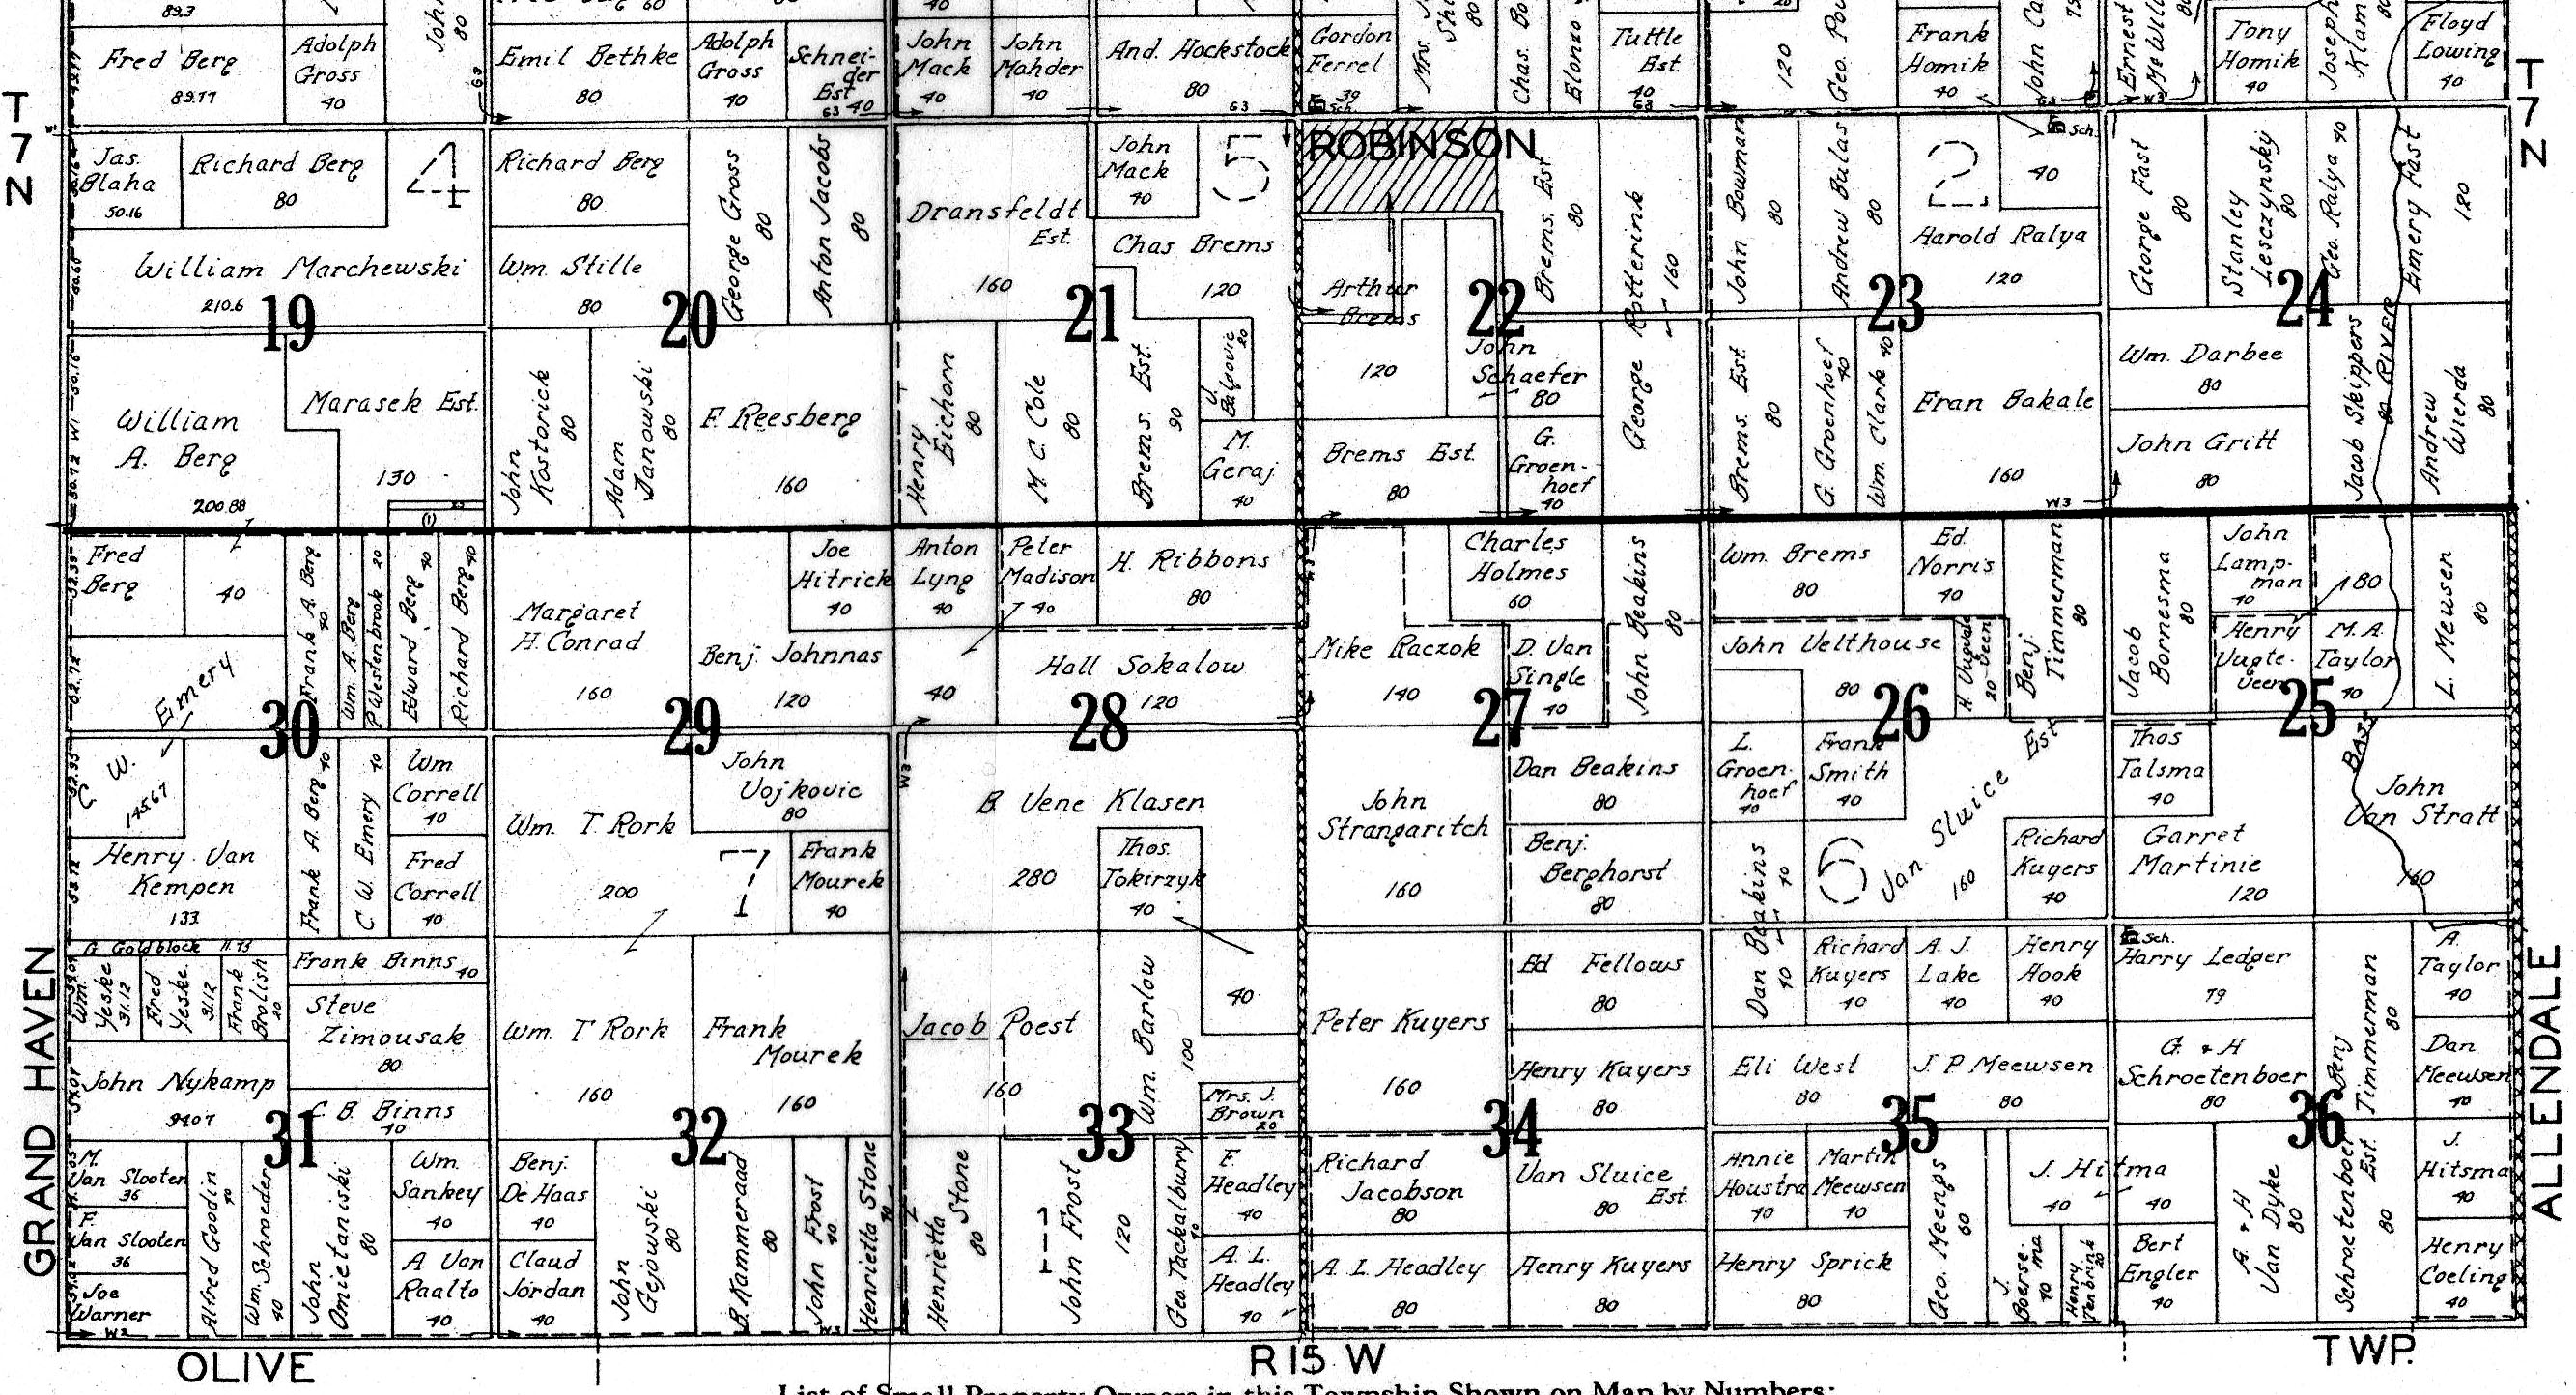 89.3
John
80
60
40
Fred Berg
89.77
Adolph
Gross
40
Emil Bethke
80
Adolph
Gross
40
Schnei-
der
Est 40
John
Mack
40
John
Mahder
40
And. Hockstock
80
Gordon
Ferrel
39
Sch.
Mrs.
80
Chas. Bo
Elonzo
Tuttle
Est.
40
120
Geo. Pou
Frank
Homik
40
John Ca
Ernest
McWill
Tony
Homik
40
Joseph
Klam
80
Floyd
Lowing
40
T
7
N
T
7
N
Jas.
Blaha
50.16
Richard Berg
80
4
William Marchewski
210.6
19
William
A. Berg
200.88
Marasek Est.
130
(1)
Richard Berg
80
Wm. Stille
80
George Gross
80
Anton Jacobs
80
20
John
Kostorick
80
Adam
Janowski
80
F. Reesberg
160
Dransfeldt
Est.
160
John
Mack
40
5
Chas Brems
120
21
Henry
Eichorn
80
M. C. Cole
80
Brems. Est.
90
J.
Balgovic
20
M.
Geraj
40
ROBINSON
Arthur
Brems
120
22
Brems. Est
80
George Rotterink
160
John
Schaefer
80
Brems Est.
80
G.
Groen-
hoef
40
John Bowman
80
Andrew Bulas
80
2
Sch.
40
Harold Ralya
120
23
Brems. Est.
80
G. Groenhoef
40
Wm. Clark 40
Fran Bakale
160
W3
George Fast
80
Stanley
Lesczynsky
80
Geo. Ralya 40
Emery Fast
120
24
Wm. Darbee
80
John Gritt
80
Jacob Skippers
80
RIVER
Andrew
Wierda
80
Fred
Berg
40
Frank A. Berg
40
Wm. A. Berg
P. Westenbrook 20
Edward Berg 40
Richard Berg 40
C. W. Emery
145.67
30
Frank A. Berg 40
C. W. Emery 40
Wm
Correll
40
Fred
Correll
40
Henry Van
Kempen
133
Margaret
H. Conrad
160
Joe
Hitrick
40
Benj. Johnnas
120
29
Wm. T. Rork
200
John
Vojkovic
80
7
Frank
Mourek
40
Anton
Lyng
40
Peter
Madison
40
H. Ribbons
80
40
Hall Sokalow
120
28
B Vene Klasen
280
Thos.
Tokirzyk
40
Mike Raczok
140
Charles
Holmes
60
John Beakins
80
D. Van
Single
40
27
John
Strangaritch
160
Dan Beakins
80
Benj.
Berghorst
80
Wm. Brems
80
Ed.
Norris
40
Benj.
Timmerman
80
John Velthouse
80
20
26
L.
Groen-
hoef
40
Frank
Smith
40
Dan Beakins
40
6
Van Sluice Est
160
Richard
Kuyers
40
Jacob
Bornesma
80
John
Lamp-
man
40
180
Henry
Vugte-
veen
M. A.
Taylor
40
L. Meusen
80
25
Thos
Talsma
40
Garret
Martinie
120
BASS
John
Van Stratt
160
G Goldblock 11.73
Wm.
Yeske
31.12
Fred
Yeske
31.12
Frank
Brolish
20
Frank Binns 40
Steve
Zimousak
80
John Nykamp
94.07
C. B. Binns
40
31
M.
Van Slooten
36
F.
Van Slooten
36
Joe
Warner
Alfred Goodin
40
Wm. Schroeder
40
John
Omietaniski
80
Wm.
Sankey
40
A Van
Raalto
40
Wm T Rork
160
Frank
Mourek
160
32
Benj.
De Haas
40
Claud
Jordan
40
John
Gejowski
80
B. Kammeraad
80
John Frost
40
Henrietta Stone
40
Jacob Poest
160
Wm. Barlow
100
40
Mrs. J.
Brown
20
33
Henrietta
Stone
80
1
John Frost
120
Geo. Tackalburry
40
F.
Headley
40
A. L.
Headley
40
Peter Kuyers
160
Ed Fellows
80
Henry Kuyers
80
34
Richard
Jacobson
80
Van Sluice
Est.
80
A. L. Headley
80
Henry Kuyers
80
40
Richard
Kuyers
40
A. J.
Lake
40
Henry
Hook
40
Eli West
80
J. P Meewsen
80
35
Annie
Houstra
40
Martin
Meewsen
40
Geo. Meengs
60
J. Hitma
40
40
Henry Sprick
80
J.
Boerse-
ma
40
Henry
Tenbrink
20
Sch.
Harry Ledger
79
G. & H
Schroetenboer
80
Benj
Timmerman
80
A.
Taylor
40
Dan
Meewsen
40
36
Bert
Engler
40
A. & H
Van Dyke
80
Schroetenboer
Est.
80
J.
Hitsma
40
Henry
Coeling
40
GRAND HAVEN
ALLENDALE
OLIVE
R 15 W
TWP.
List of Small Property Owners in this Township Shown on Map by Numbers: